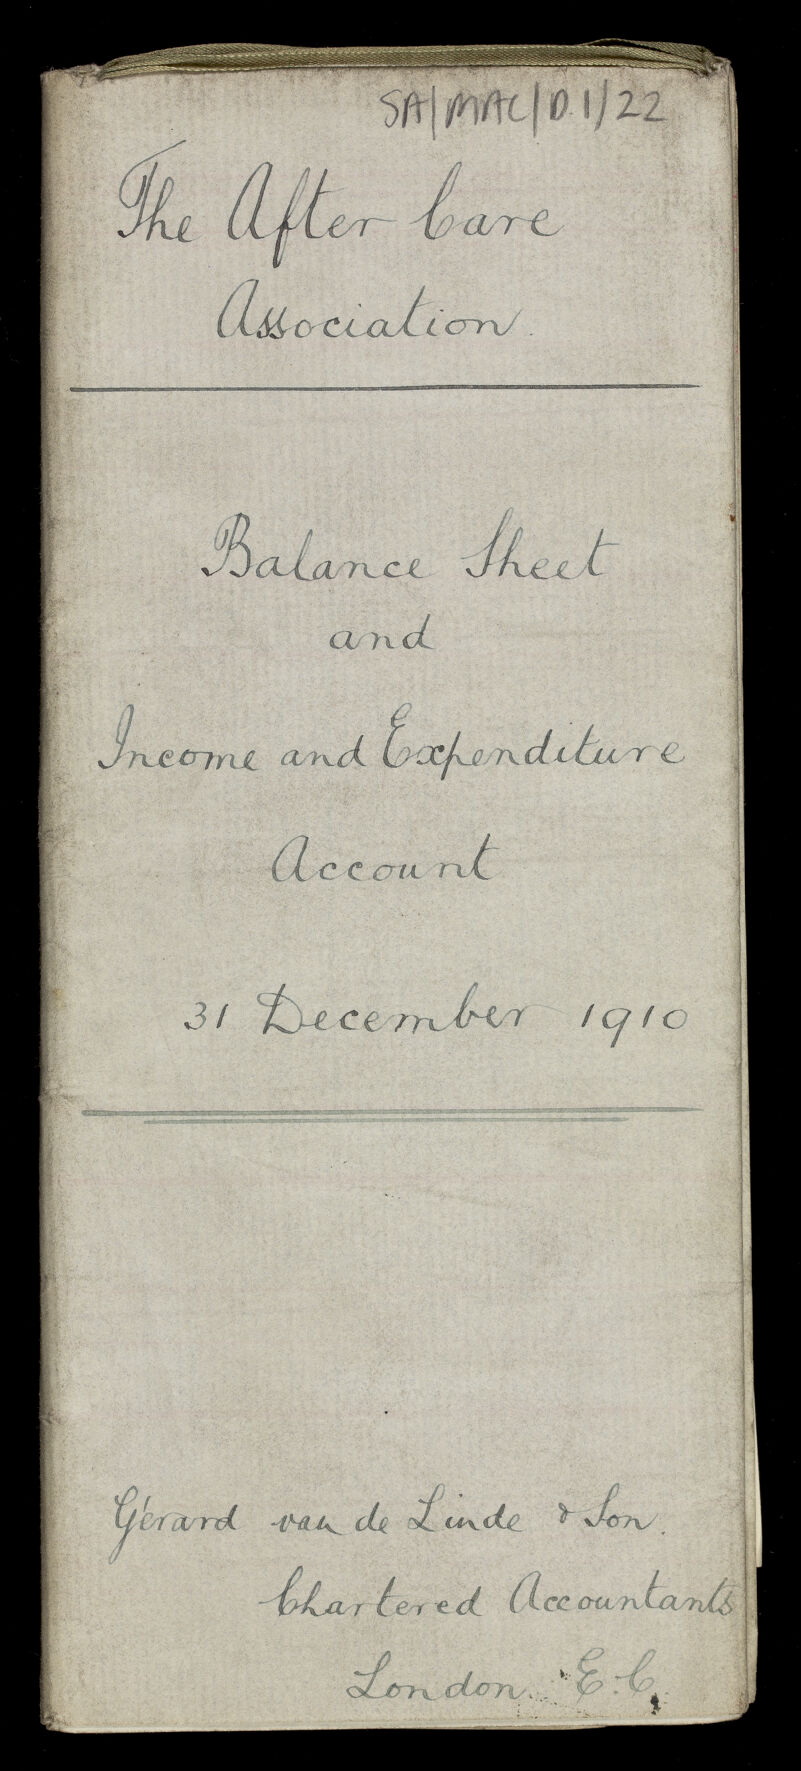 SA/MAC/D.1/22
The After Care
Association.
Balance Sheet
and
Income and Expenditure
Account
31 December 1910
Gérard van de Linde & Son.
Chartered Accountants
London. E.C.